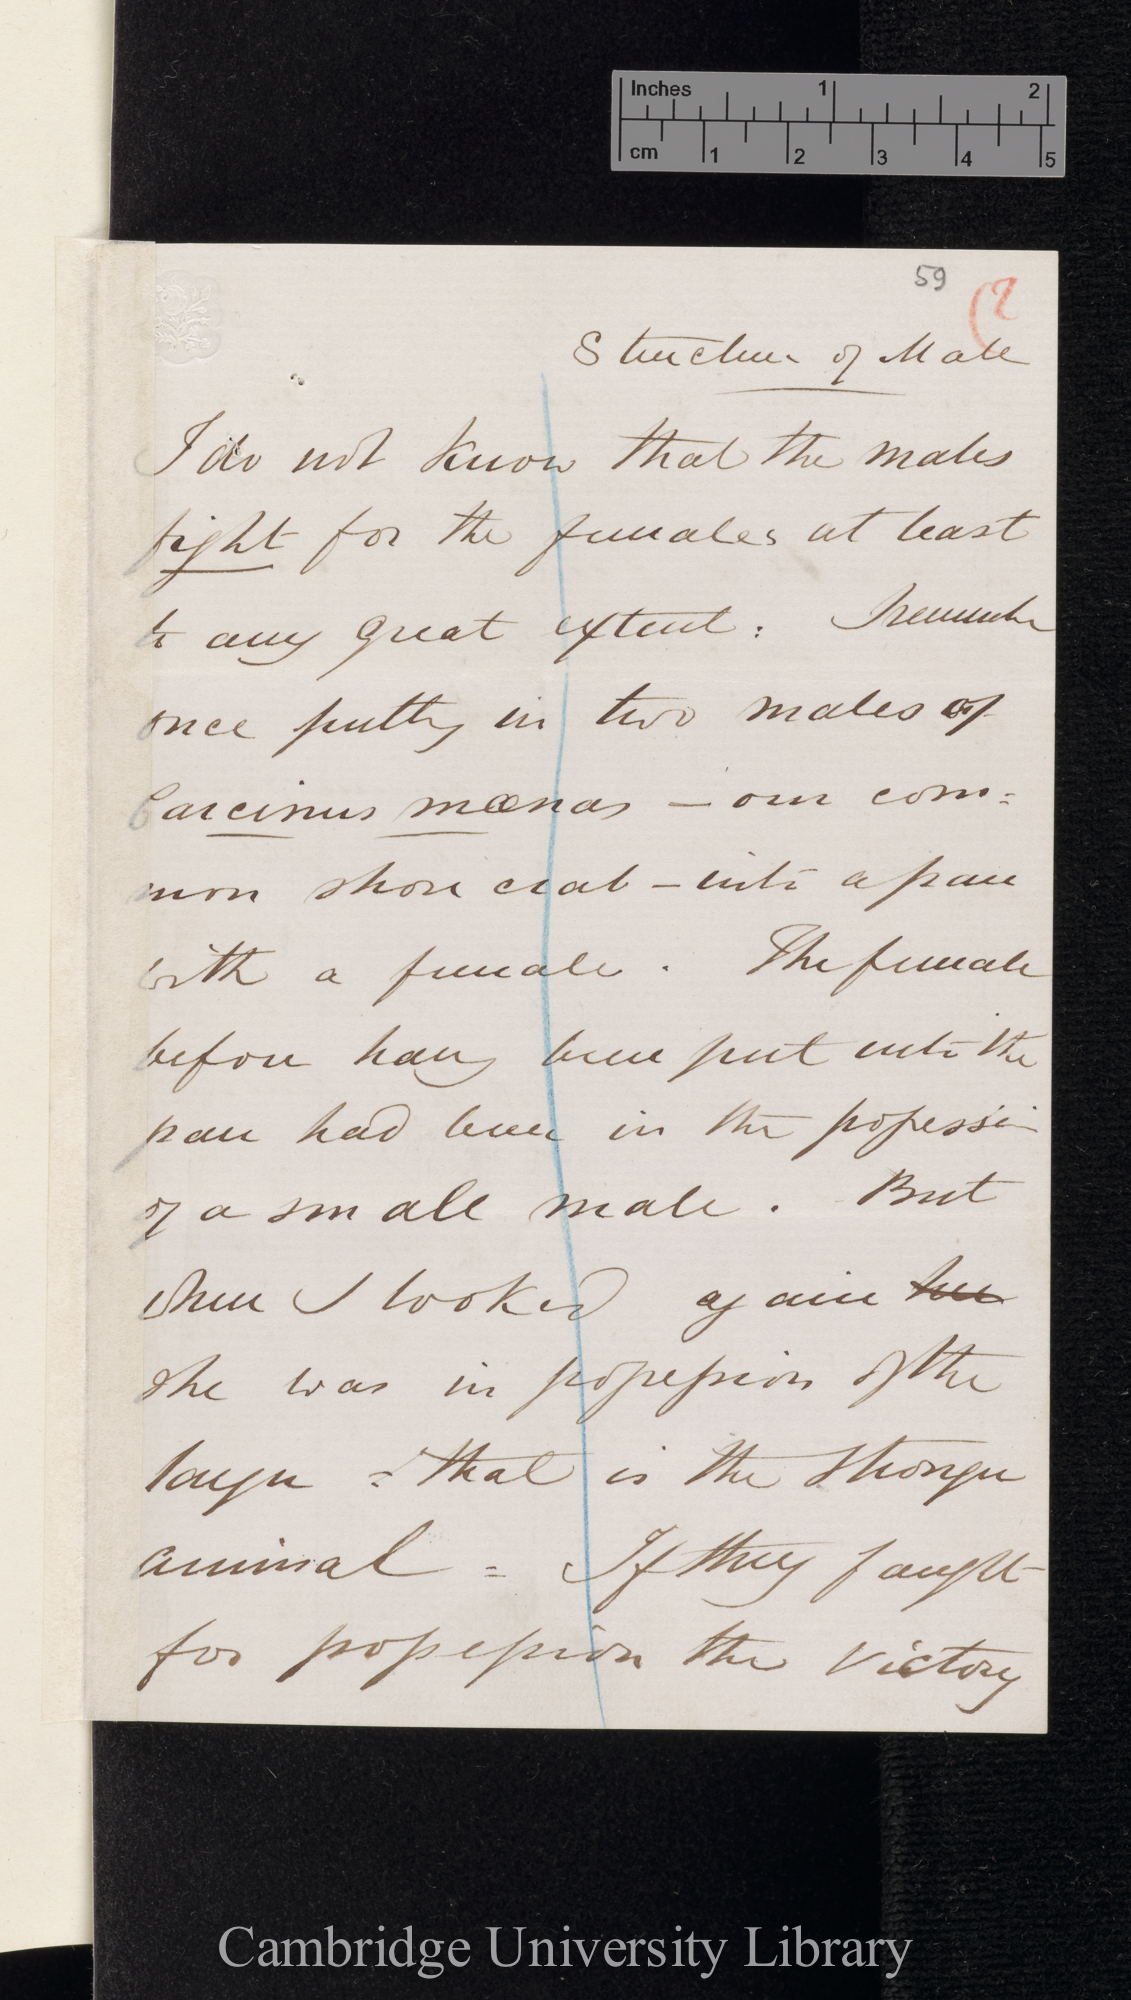 Inches 1 2
cm 1 2 3 4 5
59
(2
Structure of Male
I do not know that the males
fight for the females at least
to any great extent: I remember
once putting in two males of
Carcinus mænas – our com=
mon shore crab – into a pan
with a female. The female
before having been put into the
pan had been in the possession
of a small male. But
when I looked again her
she was in possession of the
larger = that is the stronger
animal = If they fought
for possession the victory
Cambridge University Library